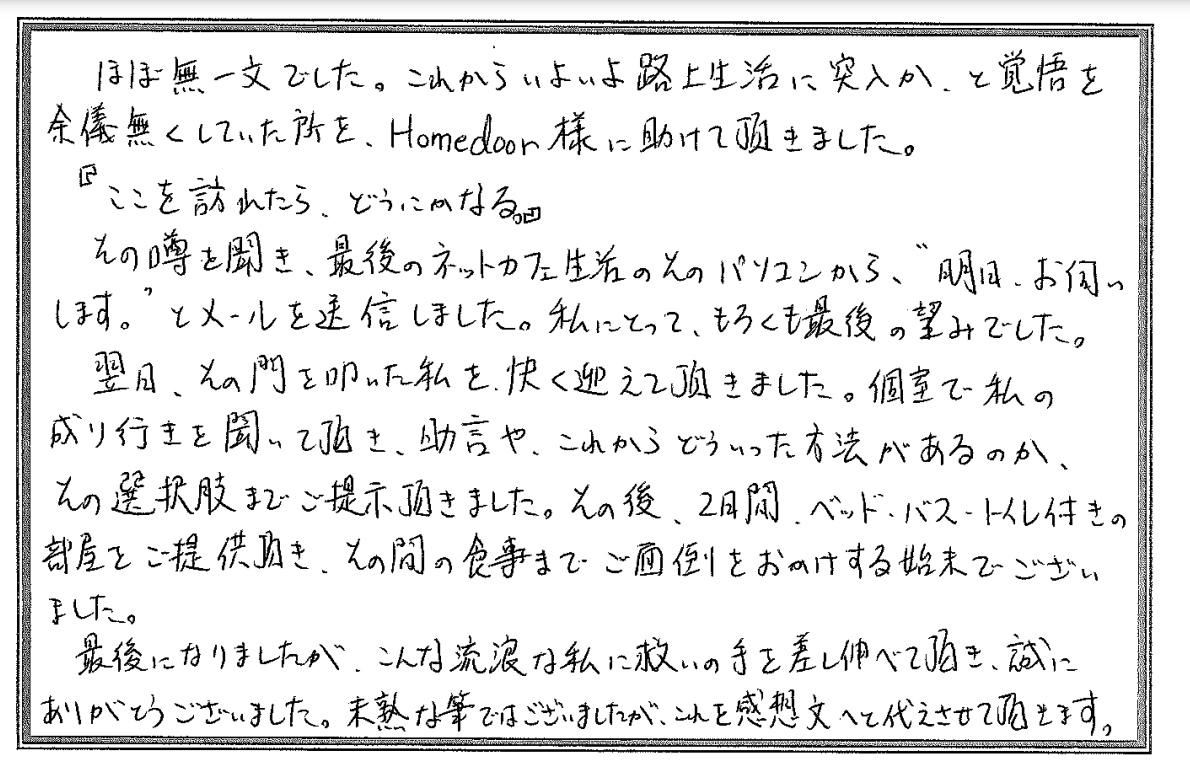 ほぼ無一文でした。これからいよいよ路上生活に突入か、と覚悟を
余儀無くしていた所を、Homedoor様に助けて頂きました。
『ここを訪れたら、どうにかなる。』
その噂を聞き、最後のネットカフェ生活のそのパソコンから、“明日、お伺い
します。”とメールを送信しました。私にとって、もろくも最後の望みでした。
翌日、その門を叩いた私を、快く迎えて頂きました。個室で私の
成り行きを聞いて頂き、助言や、これからどういった方法があるのか、
その選択肢までご提示頂きました。その後、2日間、ベッド・バス・トイレ付きの
部屋をご提供頂き、その間の食事までご面倒をおかけする始末でござい
ました。
最後になりましたが、こんな流浪な私に救いの手を差し伸べて頂き、誠に
ありがとうございました。未熟な筆ではございましたが、これを感想文へと代えさせて頂きます。